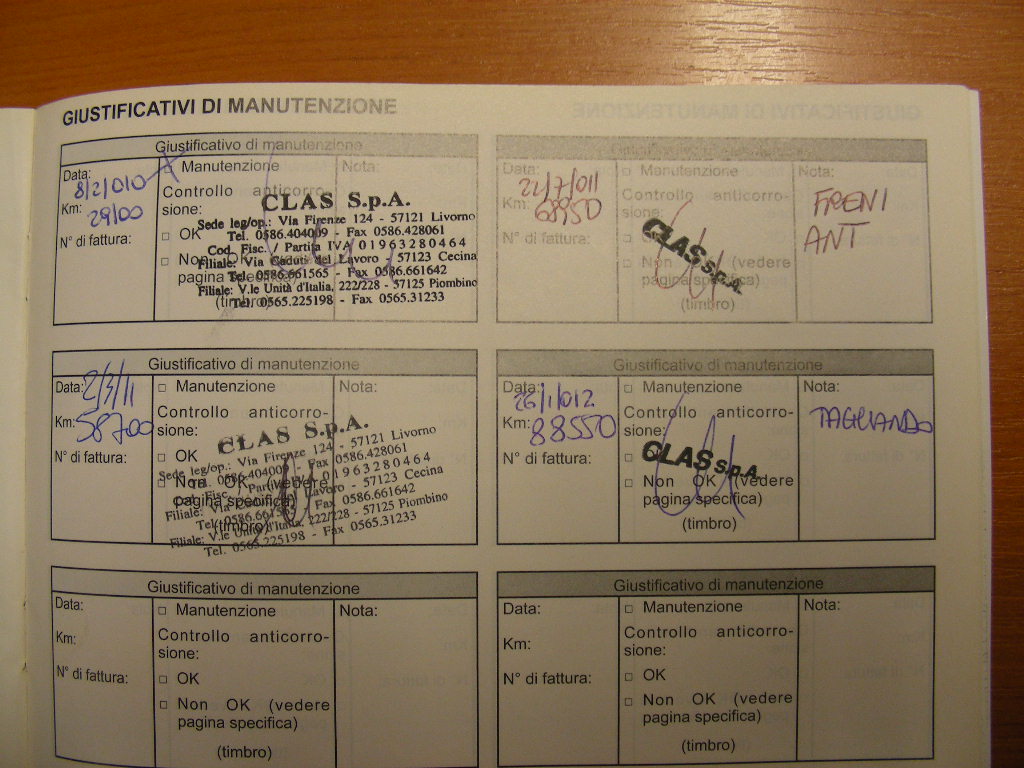 GIUSTIFICATIVI DI MANUTENZIONE
Giustificativo di manutenzione
Data:
8/2/010
Km:
29100
N° di fattura:
Manutenzione
Controllo anticorro-
sione:
OK
Non OK (vedere
pagina specifica)
(timbro)
Nota:
CLAS S.p.A.
Sede leg/op.: Via Firenze 124 - 57121 Livorno
Tel. 0586.404009 - Fax 0586.428061
Cod. Fisc. / Partita IVA 01963280464
Filiale: Via Caduti del Lavoro - 57123 Cecina
Tel. 0586.661565 - Fax 0586.661642
Filiale: V.le Unità d'Italia, 222/228 - 57125 Piombino
Tel. 0565.225198 - Fax 0565.31233
Giustificativo di manutenzione
Data:
22/7/011
Km:
68950
N° di fattura:
Manutenzione
Controllo anticorro-
sione:
OK
Non OK (vedere
pagina specifica)
(timbro)
CLAS S.p.A.
Nota:
FRENI
ANT
Giustificativo di manutenzione
Data:
2/3/11
Km:
58700
N° di fattura:
Manutenzione
Controllo anticorro-
sione:
OK
Non OK (vedere
pagina specifica)
(timbro)
Nota:
CLAS S.p.A.
Sede leg/op.: Via Firenze 124 - 57121 Livorno
Tel. 0586.404009 - Fax 0586.428061
Cod. Fisc. / Partita IVA 01963280464
Filiale: Via Caduti del Lavoro - 57123 Cecina
Tel. 0586.661565 - Fax 0586.661642
Filiale: V.le Unità d'Italia, 222/228 - 57125 Piombino
Tel. 0565.225198 - Fax 0565.31233
Giustificativo di manutenzione
Data:
26/1/012
Km:
88550
N° di fattura:
Manutenzione
Controllo anticorro-
sione:
OK
Non OK (vedere
pagina specifica)
(timbro)
CLAS S.p.A.
Nota:
TAGLIANDO
Giustificativo di manutenzione
Data:
Km:
N° di fattura:
Manutenzione
Controllo anticorro-
sione:
OK
Non OK (vedere
pagina specifica)
(timbro)
Nota:
Giustificativo di manutenzione
Data:
Km:
N° di fattura:
Manutenzione
Controllo anticorro-
sione:
OK
Non OK (vedere
pagina specifica)
(timbro)
Nota: